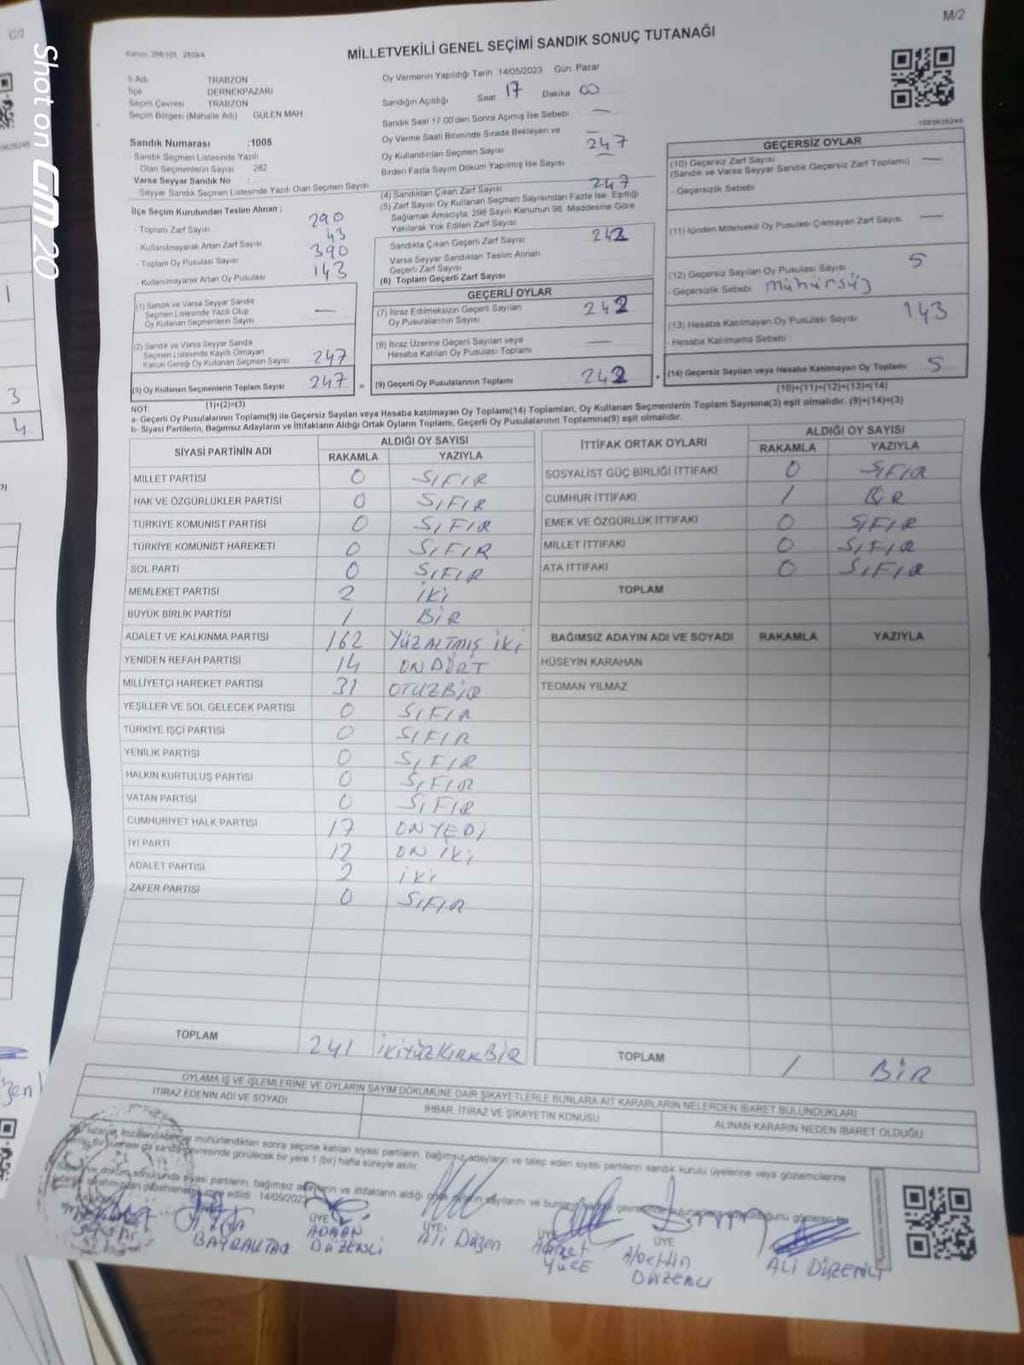 M/2
Shot on GM 20
Kanun: 298/105 2839/4
MİLLETVEKİLİ GENEL SEÇİMİ SANDIK SONUÇ TUTANAĞI
İl Adı TRABZON
İlçe DERNEKPAZARI
Seçim Çevresi TRABZON
Seçim Bölgesi (Mahalle Adı) GÜLEN MAH
Sandık Numarası :1005
Sandık Seçmen Listesinde Yazılı
Olan Seçmenlerin Sayısı 282
Varsa Seyyar Sandık No
Seyyar Sandık Seçmen Listesinde Yazılı Olan Seçmen Sayısı
İlçe Seçim Kurulundan Teslim Alınan ;
- Toplam Zarf Sayısı 290
- Kullanılmayarak Artan Zarf Sayısı 43
- Toplam Oy Pusulası Sayısı 390
- Kullanılmayarak Artan Oy Pusulası 143
(1) Sandık ve Varsa Seyyar Sandık
Seçmen Listesinde Yazılı Olup
Oy Kullanan Seçmenlerin Sayısı —
(2) Sandık ve Varsa Seyyar Sandık
Seçmen Listesinde Kayıtlı Olmayan
Kanun Gereği Oy Kullanan Seçmen Sayısı 247
(3) Oy Kullanan Seçmenlerin Toplam Sayısı 247
(1)+(2)=(3)
Oy Vermenin Yapıldığı Tarih 14/05/2023 Gün: Pazar
Sandığın Açıldığı Saat 17 Dakika 00
Sandık Saat 17.00'den Sonra Açılmış İse Sebebi —
Oy Verme Saati Bitiminde Sırada Bekleyen ve
Oy Kullandırılan Seçmen Sayısı 247
Birden Fazla Sayım Döküm Yapılmış İse Sayısı —
(4) Sandıktan Çıkan Zarf Sayısı 247
(5) Zarf Sayısı Oy Kullanan Seçmen Sayısından Fazla İse, Eşitliği
Sağlamak Amacıyla, 298 Sayılı Kanunun 98. Maddesine Göre
Yakılarak Yok Edilen Zarf Sayısı
Sandıkta Çıkan Geçerli Zarf Sayısı 242
Varsa Seyyar Sandıktan Teslim Alınan
Geçerli Zarf Sayısı
(6) Toplam Geçerli Zarf Sayısı
GEÇERLİ OYLAR
(7) İtiraz Edilmeksizin Geçerli Sayılan
Oy Pusulalarının Sayısı 242
(8) İtiraz Üzerine Geçerli Sayılan veya
Hesaba Katılan Oy Pusulası Toplamı —
(9) Geçerli Oy Pusulalarının Toplamı 242
GEÇERSİZ OYLAR
(10) Geçersiz Zarf Sayısı
(Sandık ve Varsa Seyyar Sandık Geçersiz Zarf Toplamı) —
- Geçersizlik Sebebi
(11) İçinden Milletvekili Oy Pusulası Çıkmayan Zarf Sayısı —
(12) Geçersiz Sayılan Oy Pusulası Sayısı 5
- Geçersizlik Sebebi mühürsüz
(13) Hesaba Katılmayan Oy Pusulası Sayısı 143
- Hesaba Katılmama Sebebi
(14) Geçersiz Sayılan veya Hesaba Katılmayan Oy Toplamı 5
(10)+(11)+(12)+(13)=(14)
NOT:
a- Geçerli Oy Pusulalarının Toplamı(9) ile Geçersiz Sayılan veya Hesaba katılmayan Oy Toplamı(14) Toplamları, Oy Kullanan Seçmenlerin Toplam Sayısına(3) eşit olmalıdır. (9)+(14)=(3)
b- Siyasi Partilerin, Bağımsız Adayların ve İttifakların Aldığı Ortak Oyların Toplamı, Geçerli Oy Pusulalarının Toplamına(9) eşit olmalıdır.
SİYASİ PARTİNİN ADI ALDIĞI OY SAYISI
RAKAMLA YAZIYLA
MİLLET PARTİSİ 0 SIFIR
HAK VE ÖZGÜRLÜKLER PARTİSİ 0 SIFIR
TÜRKİYE KOMÜNİST PARTİSİ 0 SIFIR
TÜRKİYE KOMÜNİST HAREKETİ 0 SIFIR
SOL PARTİ 0 SIFIR
MEMLEKET PARTİSİ 2 İKİ
BÜYÜK BİRLİK PARTİSİ 1 BİR
ADALET VE KALKINMA PARTİSİ 162 YÜZALTMIŞ İKİ
YENİDEN REFAH PARTİSİ 14 ONDÖRT
MİLLİYETÇİ HAREKET PARTİSİ 31 OTUZBİR
YEŞİLLER VE SOL GELECEK PARTİSİ 0 SIFIR
TÜRKİYE İŞÇİ PARTİSİ 0 SIFIR
YENİLİK PARTİSİ 0 SIFIR
HALKIN KURTULUŞ PARTİSİ 0 SIFIR
VATAN PARTİSİ 0 SIFIR
CUMHURİYET HALK PARTİSİ 17 ONYEDİ
İYİ PARTİ 12 ON İKİ
ADALET PARTİSİ 2 İKİ
ZAFER PARTİSİ 0 SIFIR
TOPLAM 241 İKİYÜZKIRKBİR
İTTİFAK ORTAK OYLARI ALDIĞI OY SAYISI
RAKAMLA YAZIYLA
SOSYALİST GÜÇ BİRLİĞİ İTTİFAKI 0 SIFIR
CUMHUR İTTİFAKI 1 BİR
EMEK VE ÖZGÜRLÜK İTTİFAKI 0 SIFIR
MİLLET İTTİFAKI 0 SIFIR
ATA İTTİFAKI 0 SIFIR
TOPLAM
BAĞIMSIZ ADAYIN ADI VE SOYADI RAKAMLA YAZIYLA
HÜSEYİN KARAHAN
TEOMAN YILMAZ
TOPLAM 1 BİR
OYLAMA İŞ VE İŞLEMLERİNE VE OYLARIN SAYIM DÖKÜMÜNE DAİR ŞİKAYETLERLE BUNLARA AİT KARARLARIN NELERDEN İBARET BULUNDUKLARI
İTİRAZ EDENİN ADI VE SOYADI İHBAR, İTİRAZ VE ŞİKAYETİN KONUSU ALINAN KARARIN NEDEN İBARET OLDUĞU
mühürlendikten sonra seçime katılan siyasi partilerin, bağımsız adayların ve talep eden siyasi partilerin sandık kurulu üyelerine veya gözlemcilerine
çevresinde görülecek bir yere 1 (bir) hafta süreyle asılır.
14/05/2023
BAYRAKTAR
ÜYE ADNAN DÜZENLİ
ÜYE Ali Düzen
ÜYE Ahmet YÜCE
ÜYE DÜZENLİ
ALİ DÜZENLİ